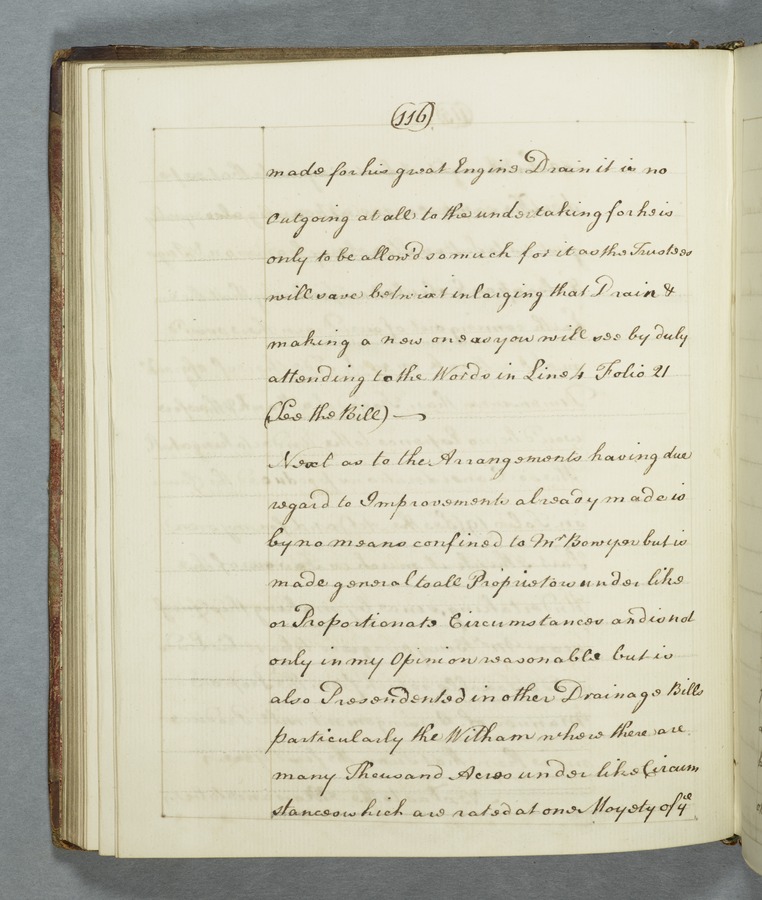 (116)
made for his great Engine Drain it is no
outgoing at all to the undertaking for he is
only to be allow'd so much for it as the Trustees
will save betwixt inlarging that Drain &
making a new one as you will see by duly
attending to the Words in Line 4 Folio 21
(See the Bill)
Next as to the Arrangements having due
regard to Improvements already made is
by no means confined to Mr Bowyer but is
made general to all Proprietors under like
or Proportionate Circumstances and is not
only in my Opinion reasonable but is
also Presendented in other Drainage Bills
particularly the Witham where there are
many Thousand Acres under like Circum
stances which are rated at one Moyety of ye